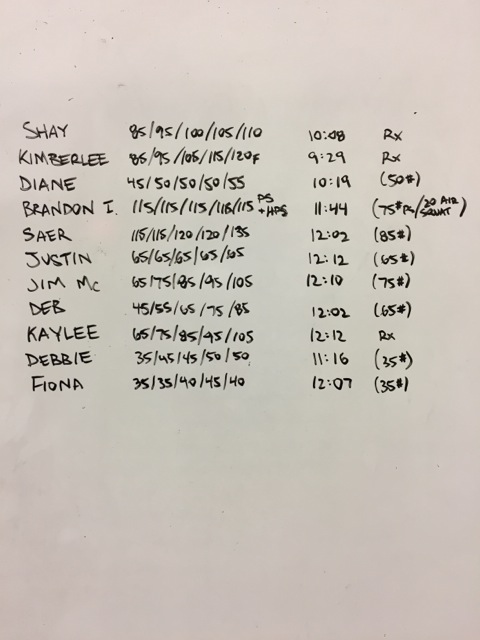 SHAY 85/95/100/105/110 10:08 Rx
KIMBERLEE 85/95/105/115/120F 9:29 Rx
DIANE 45/50/50/50/55 10:19 (50#)
BRANDON I. 115/115/115/115/115 PS + HPS 11:44 (75# PS/20 AIR SQUAT)
SAER 115/115/120/120/135 12:02 (85#)
JUSTIN 65/65/65/65/65 12:12 (65#)
JIM Mc 65/75/85/95/105 12:10 (75#)
DEB 45/55/65/75/85 12:02 (65#)
KAYLEE 65/75/85/95/105 12:12 Rx
DEBBIE 35/45/45/50/50 11:16 (35#)
FIONA 35/35/40/45/40 12:07 (35#)